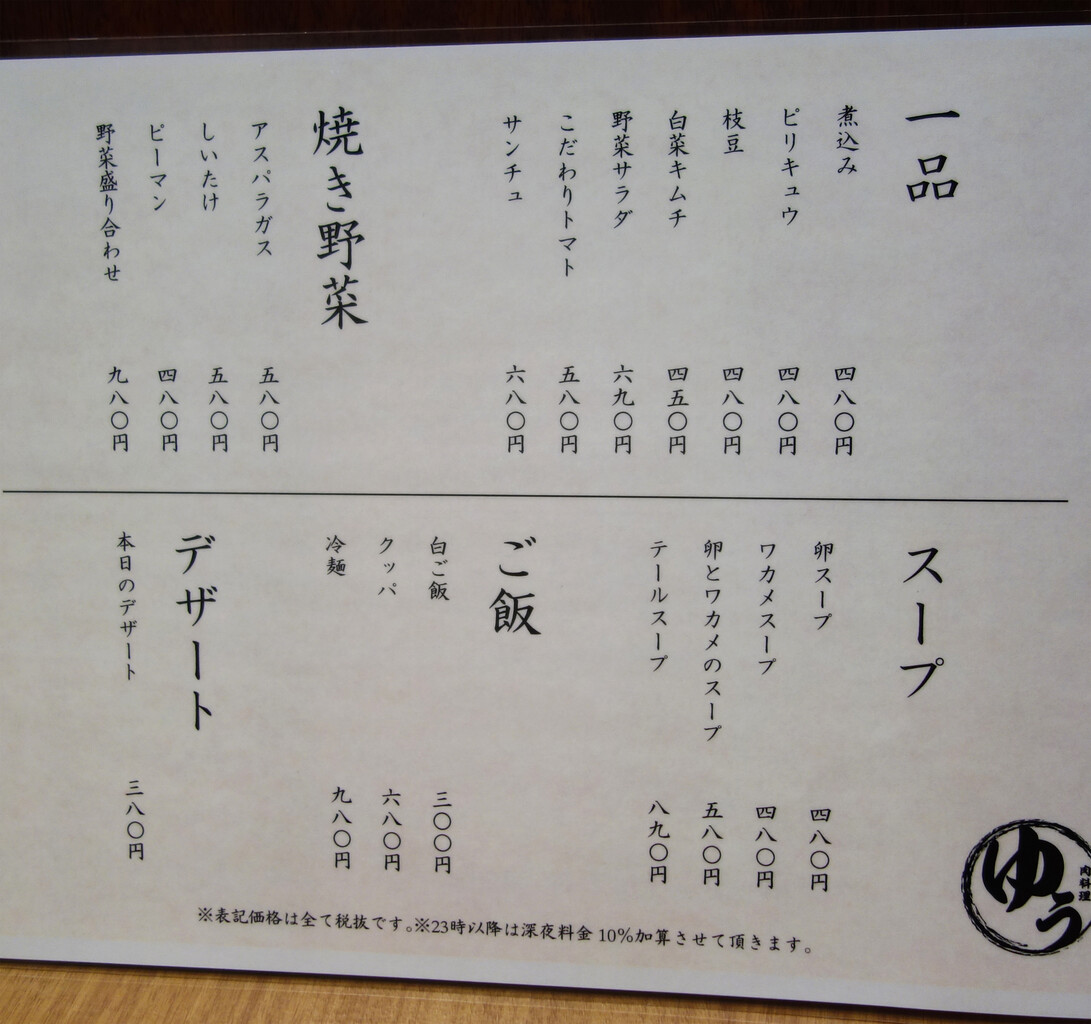 一品
煮込み 四八〇円
ピリキュウ 四八〇円
枝豆 四八〇円
白菜キムチ 四五〇円
野菜サラダ 六九〇円
こだわりトマト 五八〇円
サンチュ 六八〇円
焼き野菜
アスパラガス 五八〇円
しいたけ 五八〇円
ピーマン 四八〇円
野菜盛り合わせ 九八〇円
スープ
卵スープ 四八〇円
ワカメスープ 四八〇円
卵とワカメのスープ 五八〇円
テールスープ 八九〇円
ご飯
白ご飯 三〇〇円
クッパ 六八〇円
冷麺 九八〇円
デザート
本日のデザート 三八〇円
※表記価格は全て税抜です。※23時以降は深夜料金10%加算させて頂きます。
肉料理
ゆう